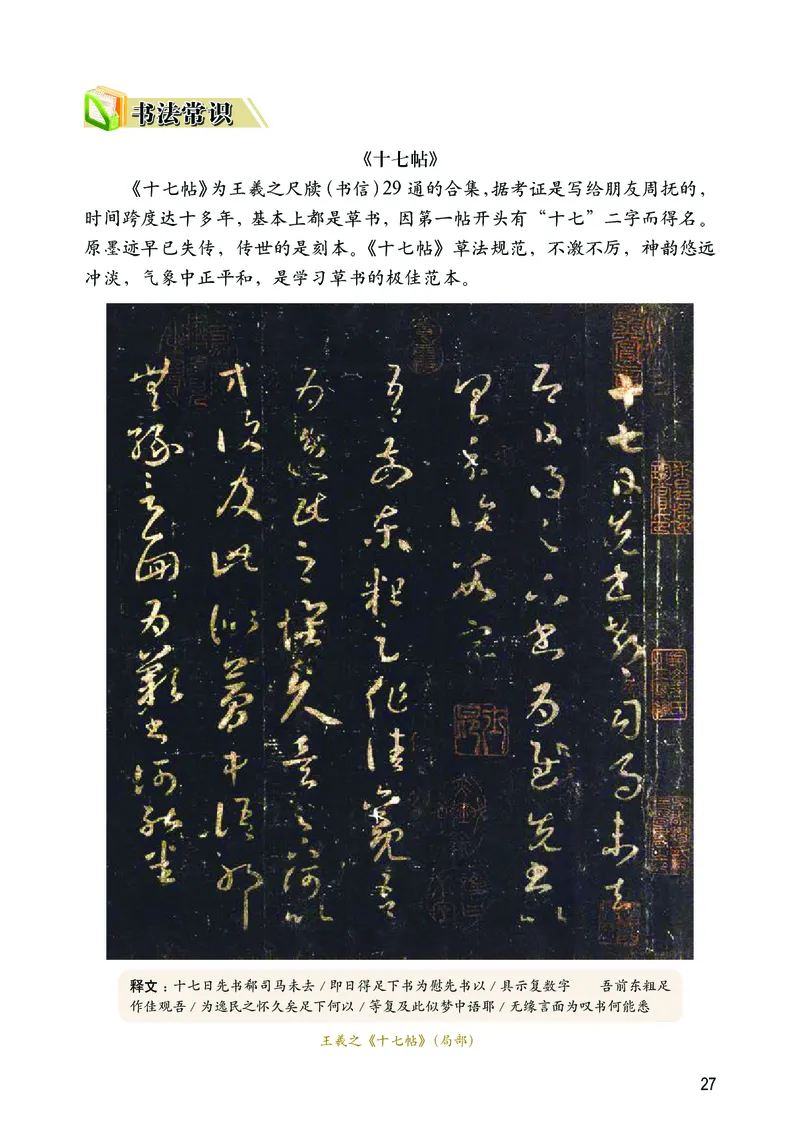 书法常识
《十七帖》
《十七帖》为王羲之尺牍（书信）29 通的合集，据考证是写给朋友周抚的，
时间跨度达十多年，基本上都是草书，因第一帖开头有“十七”二字而得名。
原墨迹早已失传，传世的是刻本。《十七帖》草法规范，不激不厉，神韵悠远
冲淡，气象中正平和，是学习草书的极佳范本。
十七日先书郗司马未去
即日得足下书为慰先书以
具示复数字
吾前东粗足作佳观吾
为逸民之怀久矣足下何以
等复及此似梦中语耶
无缘言面为叹书何能悉
释文：十七日先书郗司马未去 / 即日得足下书为慰先书以 / 具示复数字　　吾前东粗足
作佳观吾 / 为逸民之怀久矣足下何以 / 等复及此似梦中语耶 / 无缘言面为叹书何能悉
王羲之《十七帖》（局部）
27